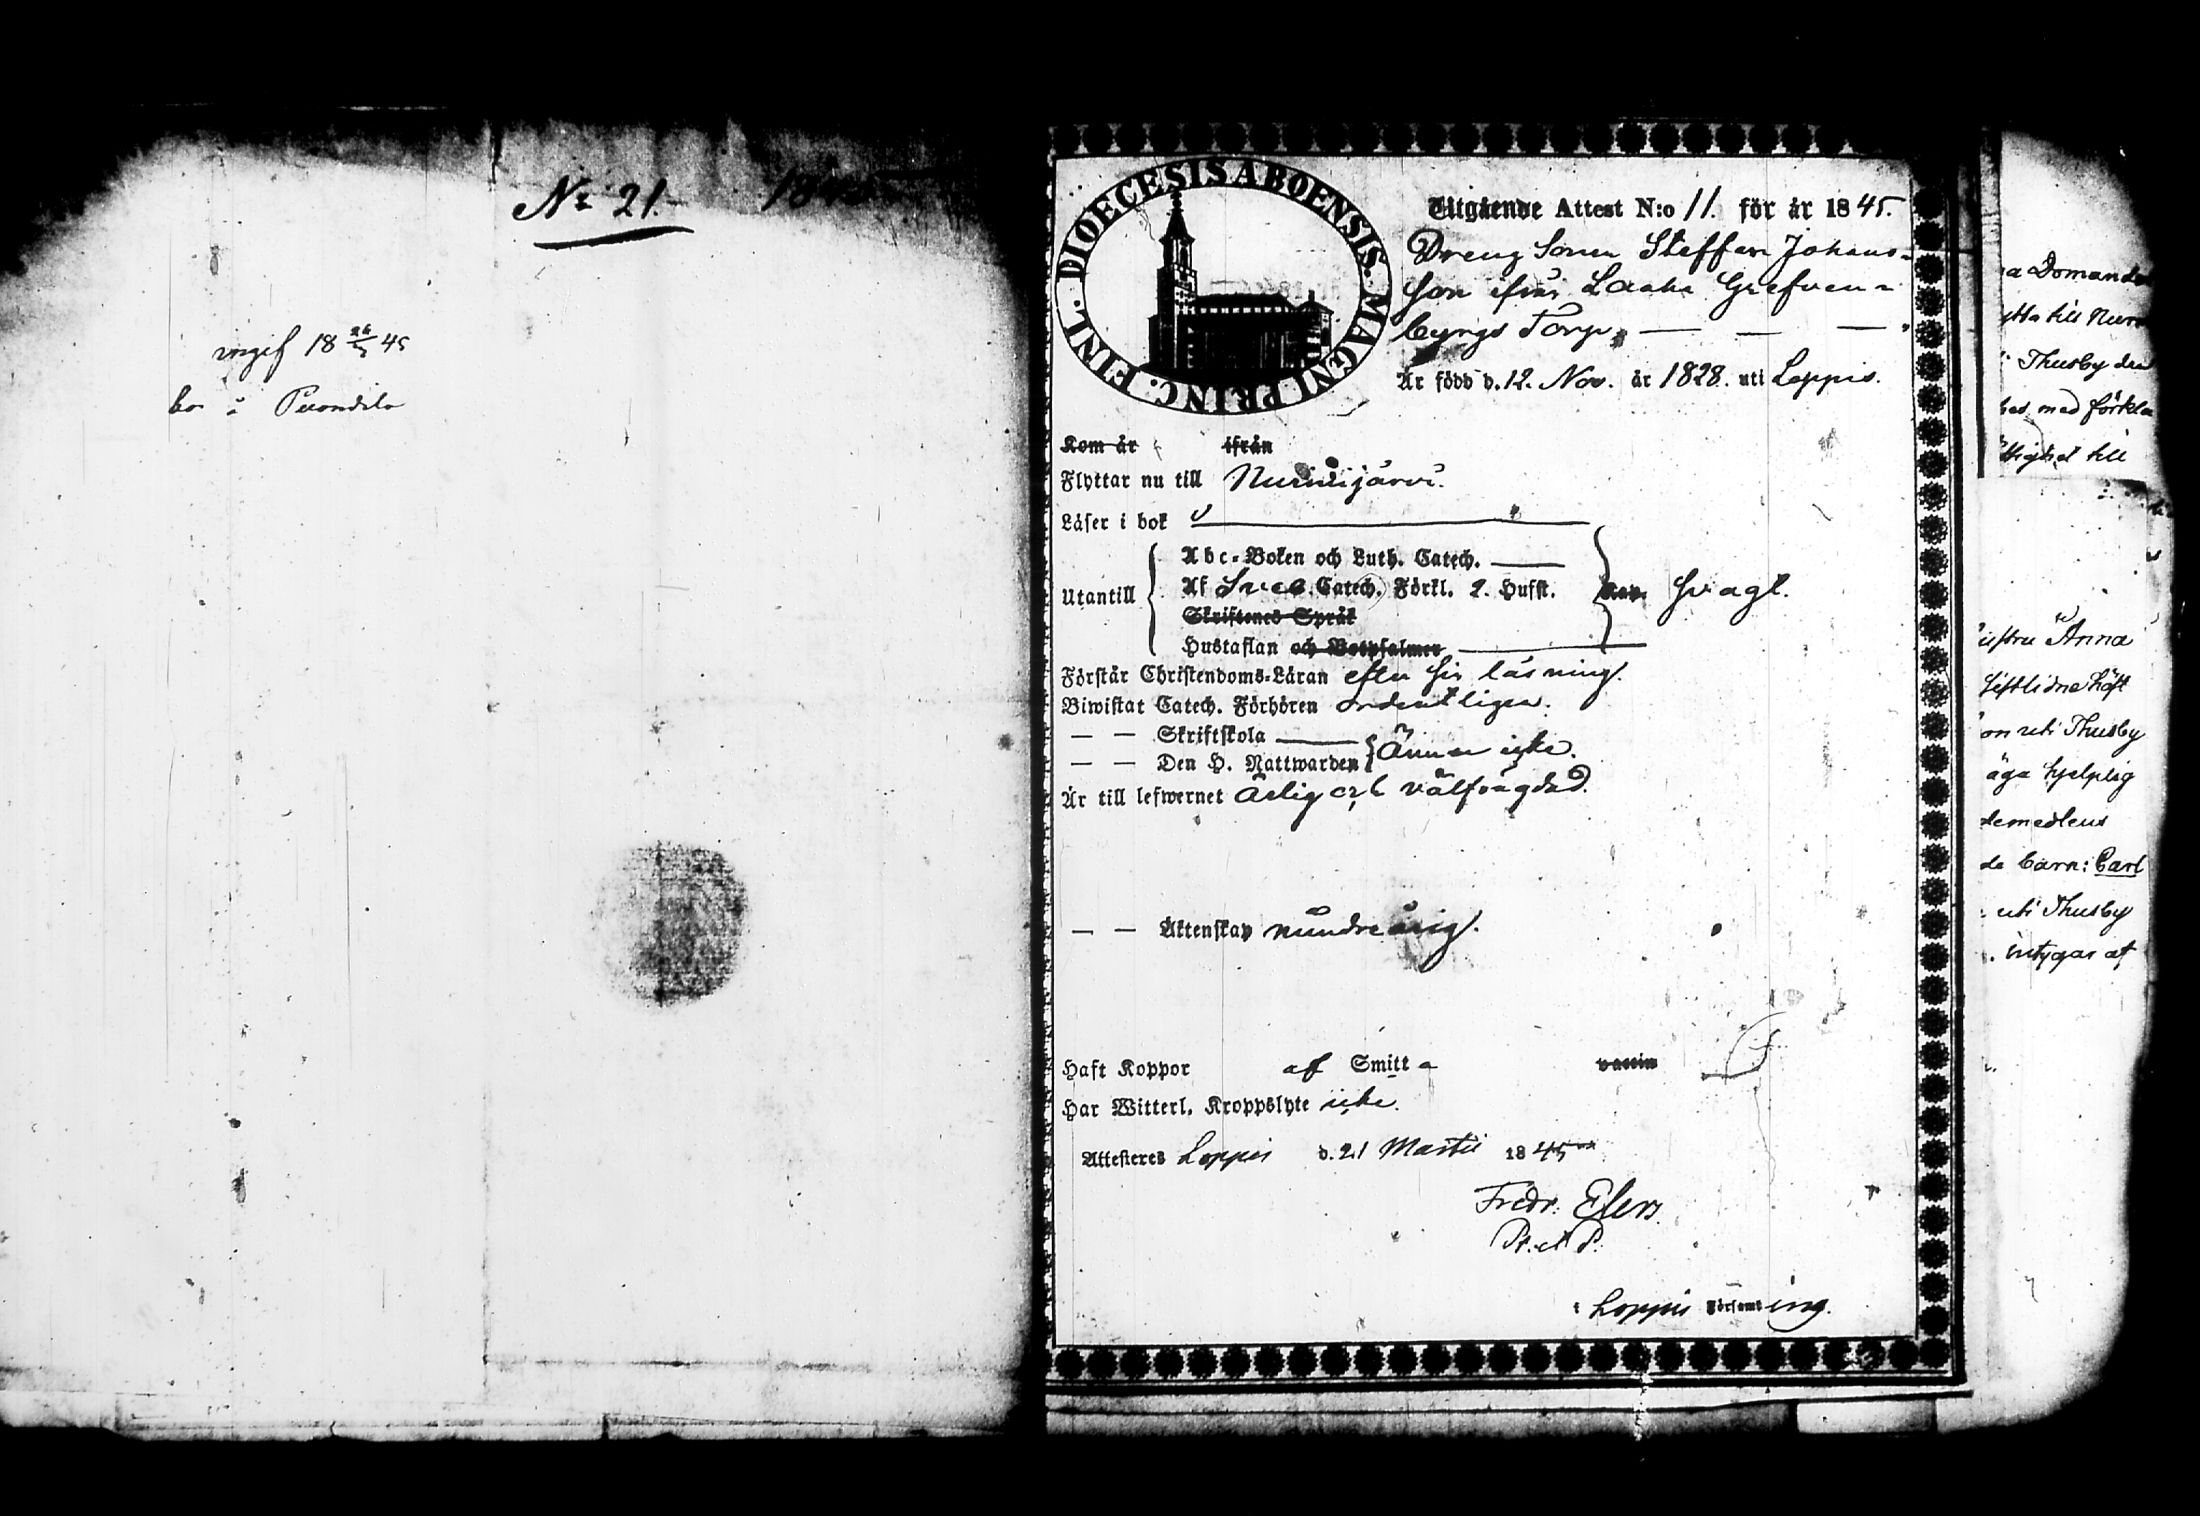 No 21.
ingif 18 26/3 45
bor i
DIOECESIS ABOENSIS. MAGNI PRINC: FINL.
Utgående Attest N:o 11. för år 1845.
Dreng Sonen Steffan Johans-
son ifrån Laaka Grefven-
byngs Torp, — — —
Är född d. 12. Nov. år 1828. uti Loppis.
Kom år ifrån
Flyttar nu till Nurmijärvi.
Läser i bok
Utantill
Abc-Boken och Luth. Catech. —
Af Sveb. Catech. Förkl. 2. Hufst. svagt.
Skriftenes Språk
Hustaflan och Botpsalmer —
Förstår Christendoms-Läran efter sin läsning.
Biwistat Catech. Förhören ordentligen.
— — Skriftskola — Ännu icke.
— — Den H. Nattwarden
Är till lefwernet ärlig och välfrägdad.
— — Äktenskap mindreårig.
Haft Koppor af Smitta vaccin
Har Witterl. Kroppslyte icke.
Attesteras Loppis d. 21 Martii 1845
Fredr. Elers.
P. et P.
i Loppis Församling.
a Domande
ytta till Nurm
i Thusby den
bes med förkla
ttighet till
ustru Anna
on uti Thusby
äga hjelplig
de barn: Carl
uti Thusby
. intygas af